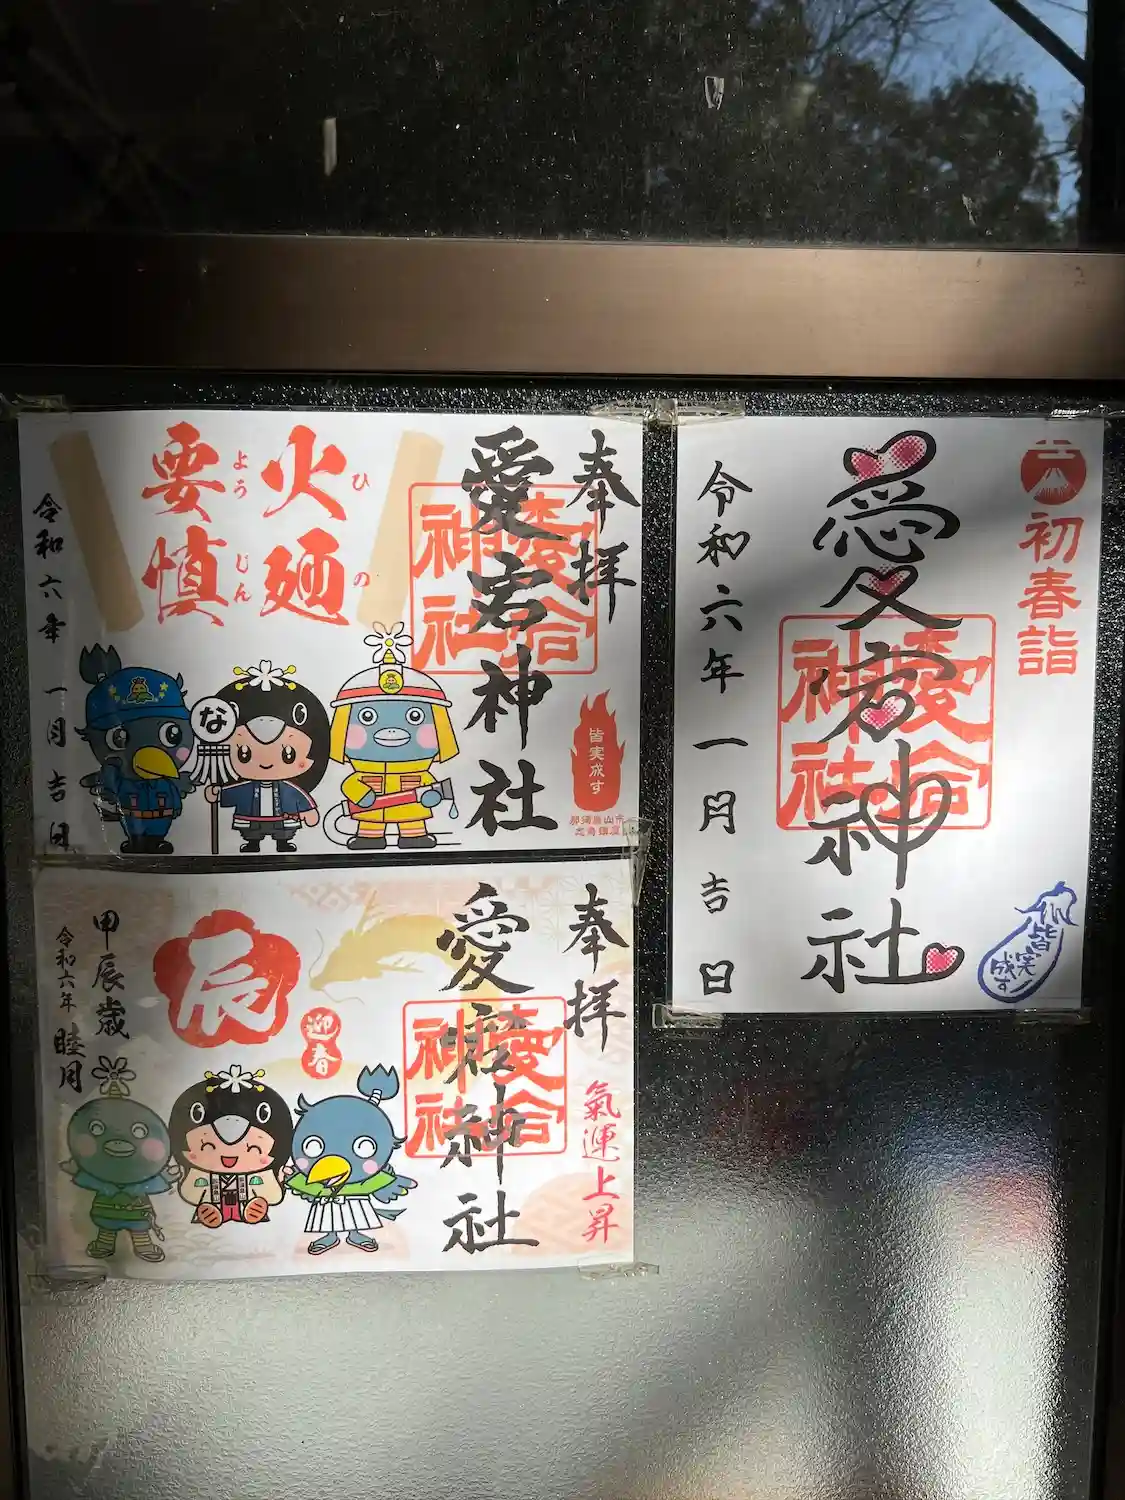 奉拝
愛宕神社
愛宕
神社
火廼
ひの
要慎
ようじん
令和六年 一月吉日
な
皆実成す
那須烏山市
初春詣
愛宕神社
愛宕
神社
令和六年一月吉日
皆実
成す
奉拝
氣運上昇
愛宕神社
愛宕
神社
辰
迎春
甲辰歳
令和六年 睦月